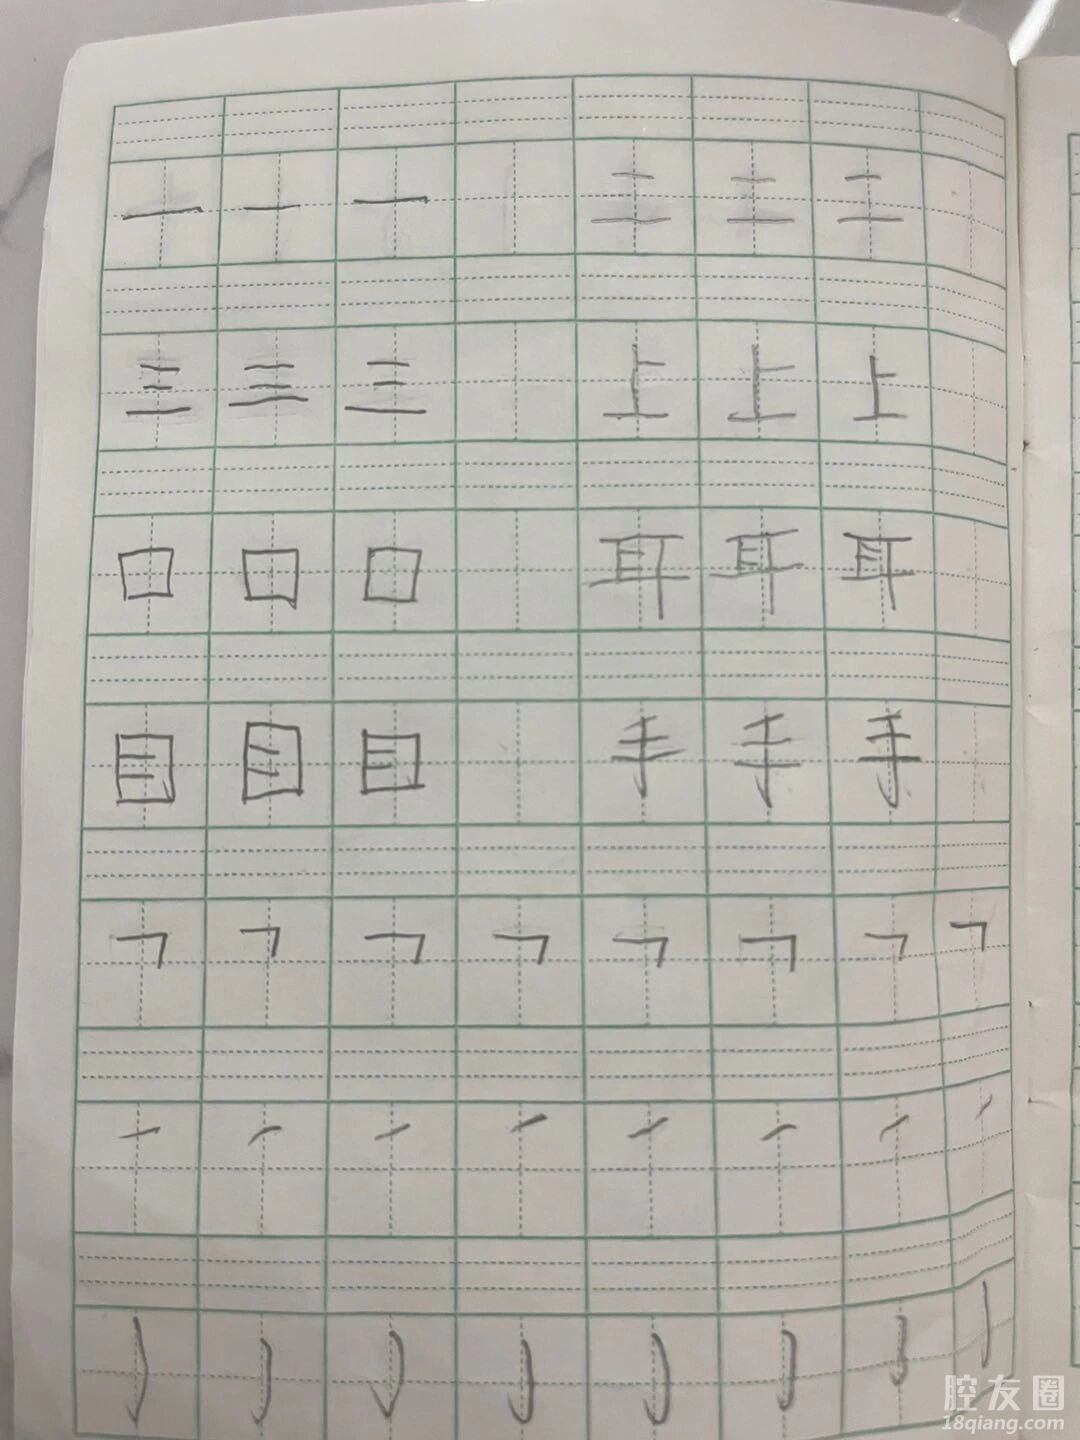 一 一 一 二 二 二
三 三 三 上 上 上
口 口 口 耳 耳 耳
目 目 目 手 手 手
㇕ ㇕ ㇕ ㇕ ㇕ ㇕ ㇕ ㇕
㇒ ㇒ ㇒ ㇒ ㇒ ㇒ ㇒ ㇒
㇁ ㇁ ㇁ ㇁ ㇁ ㇁ ㇁ ㇁
腔友圈
18qiang.com